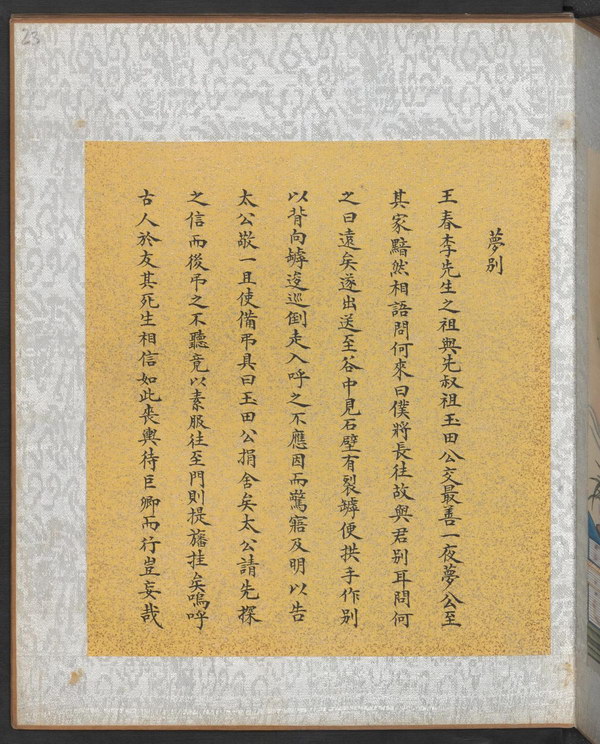 23
夢別
王春李先生之祖與先叔祖玉田公交最善一夜夢公至
其家黯然相語問何來曰僕將長往故與君別耳問何
之曰遠矣遂出送至谷中見石壁有裂罅便拱手作別
以背向罅逡巡倒走入呼之不應因而驚寤及明以告
太公敬一且使備弔具曰玉田公捐舍矣太公請先探
之信而後弔之不聽竟以素服往至門則提旛挂矣嗚呼
古人於友其死生相信如此喪輿待巨卿而行豈妄哉